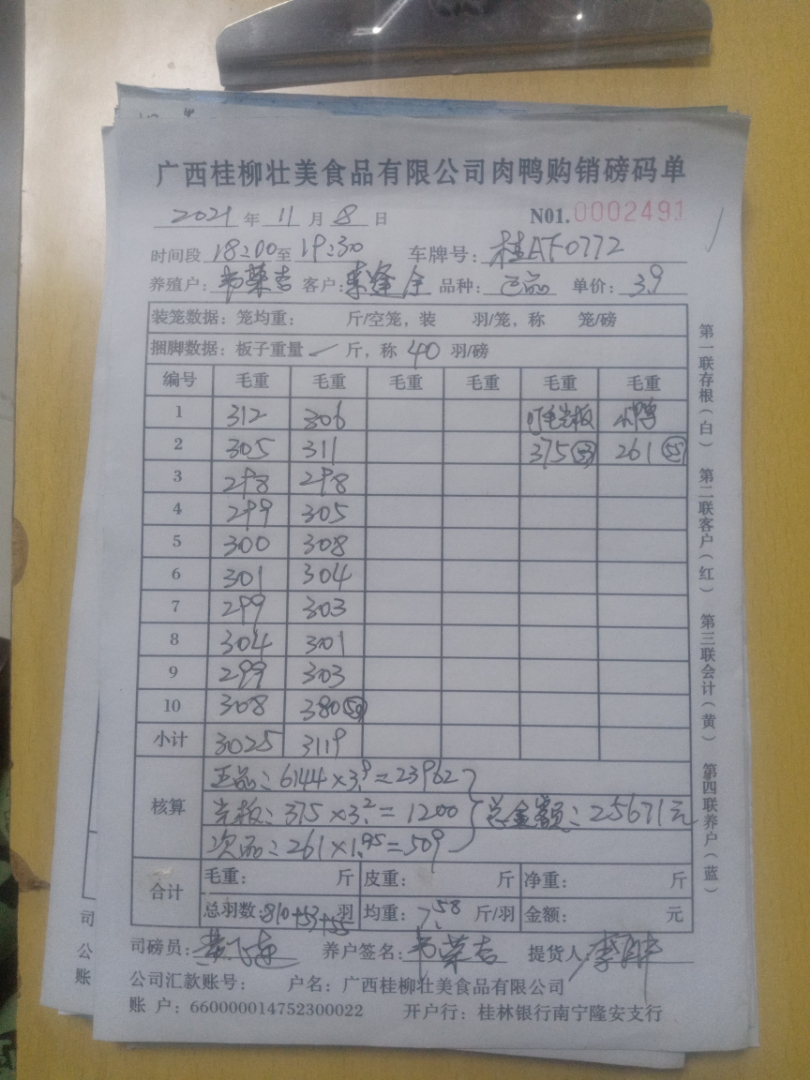 广西桂柳壮美食品有限公司肉鸭购销磅码单
2021 年 11 月 8 日 N01.0002491
时间段 18:00 至 19:30 车牌号: 桂AF0772
养殖户: 韦荣吉 客户: 品种: 正品 单价: 3.9
装笼数据: 笼均重: 斤/空笼, 装 羽/笼, 称 笼/磅
捆脚数据: 板子重量 斤, 称 40 羽/磅
编号 毛重 毛重 毛重 毛重 毛重 毛重
1 312 306 光板 小鸭
2 305 311 375 53 261 55
3 298 298
4 299 305
5 300 308
6 301 304
7 299 303
8 304 301
9 299 303
10 308 380 50
小计 3025 3119
核算
正品: 6144×3.9=23962
光板: 375×3.2=1200 总金额: 25671元
次品: 261×1.95=509
合计
毛重: 斤 皮重: 斤 净重: 斤
总羽数: 810+53+55 羽 均重: 7.58 斤/羽 金额: 元
司磅员: 养户签名: 韦荣吉 提货人: 李
公司汇款账号: 户名: 广西桂柳壮美食品有限公司
账 户: 660000014752300022 开户行: 桂林银行南宁隆安支行
第一联存根(白) 第二联客户(红) 第三联会计(黄) 第四联养户(蓝)
司
公
账